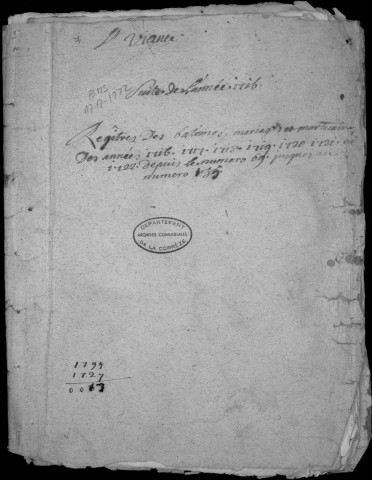 St Viance
BMS
1717-1722
Suite de l'année 1716.
Regîtres des batêmes, mariages et mortuaires
Des années 1716. 1717. 1718. 1719. 1720. 1721. et
1722. depuis le numero 69. jusques au
numero 135
DEPARTEMENT
ARCHIVES COMMUNALES
DE LA CORRÈZE
1795
1727
0013